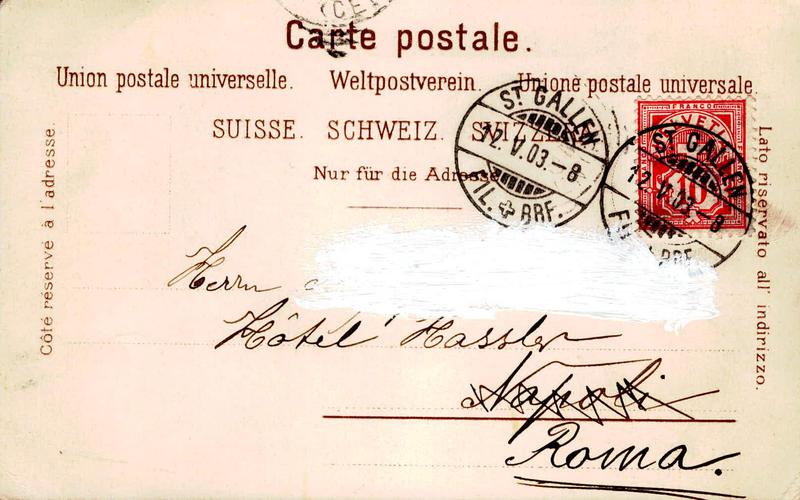 (CE
Carte postale.
Union postale universelle. Weltpostverein. Unione postale universale.
SUISSE. SCHWEIZ. SVIZZE
Nur für die Adresse
Côté réservé à l'adresse.
Lato riservato all' indirizzo.
FRANCO
10
ST. GALLEN
12.V.03-8
FIL.+BRF.
ST. GALLEN
12.V.03-8
BRF.
Herrn
Hôtel Hassler
Napoli
Roma.